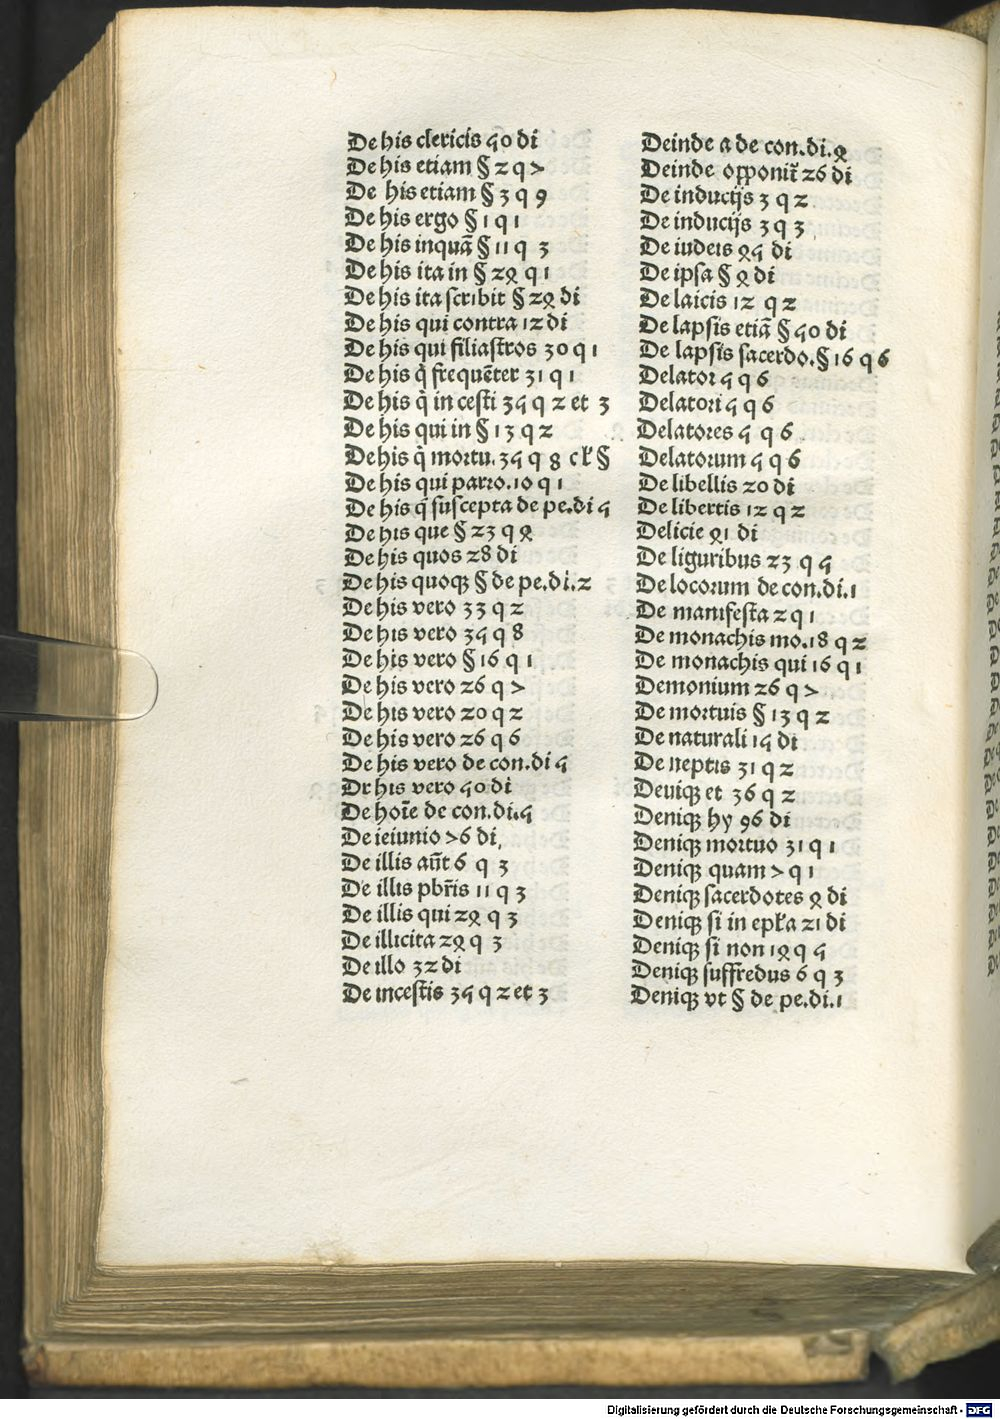 De his clericis 40 di
De his etiam § 2 q 7
De his etiam § 3 q 9
De his ergo § 1 q 1
De his inquā § 11 q 3
De his ita in § 2ꝯ q 1
De his ita scribit § 2ꝯ di
De his qui contra 12 di
De his qui filiastros 30 q 1
De his q̇ frequēter 31 q 1
De his q̇ in cesti 34 q 2 et 3
De his qui in § 13 q 2
De his q̇ mortu. 34 q 8 cł §
De his qui parro. 10 q 1
De his q̄ suscepta de pe.di 4
De his que § 23 q ꝯ
De his quos 28 di
De his quoqꝫ § de pe.di.2
De his vero 33 q 2
De his vero 34 q 8
De his vero § 16 q 1
De his vero 26 q 7
De his vero 20 q 2
De his vero 26 q 6
De his vero de con.di 4
Dr his vero 40 di
De hoīe de con.di.4
De ieiunio 76 di
De illis aūt 6 q 3
De illis pbr̄is 11 q 3
De illis qui 2ꝯ q 3
De illicita 2ꝯ q 3
De illo 32 di
De incestis 34 q 2 et 3
Deinde a de con.di.ꝯ
Deinde opponit̄ 26 di
De inducijs 3 q 2
De inducijs 3 q 3
De iudeis ꝯ4 di
De ipsa § ꝯ di
De laicis 12 q 2
De lapsis etiā § 40 di
De lapsis sacerdo.§ 16 q 6
Delator 4 q 6
Delatori 4 q 6
Delatores 4 q 6
Delatorum 4 q 6
De libellis 20 di
De libertis 12 q 2
Delicie ꝯ1 di
De liguribus 23 q 4
De locorum de con.di.1
De manifesta 2 q 1
De monachis mo.18 q 2
De monachis qui 16 q 1
Demonium 26 q 7
De mortuis § 13 q 2
De naturali 14 di
De neptis 31 q 2
Deuiqꝫ et 36 q 2
Deniqꝫ hy 96 di
Deniqꝫ mortuo 31 q 1
Deniqꝫ quam 7 q 1
Deniqꝫ sacerdotes ꝯ di
Deniqꝫ si in epła 21 di
Deniqꝫ si non 1ꝯ q 4
Deniqꝫ suffr̄edus 6 q 3
Deniqꝫ vt § de pe.di.1
Digitalisierung gefördert durch die Deutsche Forschungsgemeinschaft - DFG